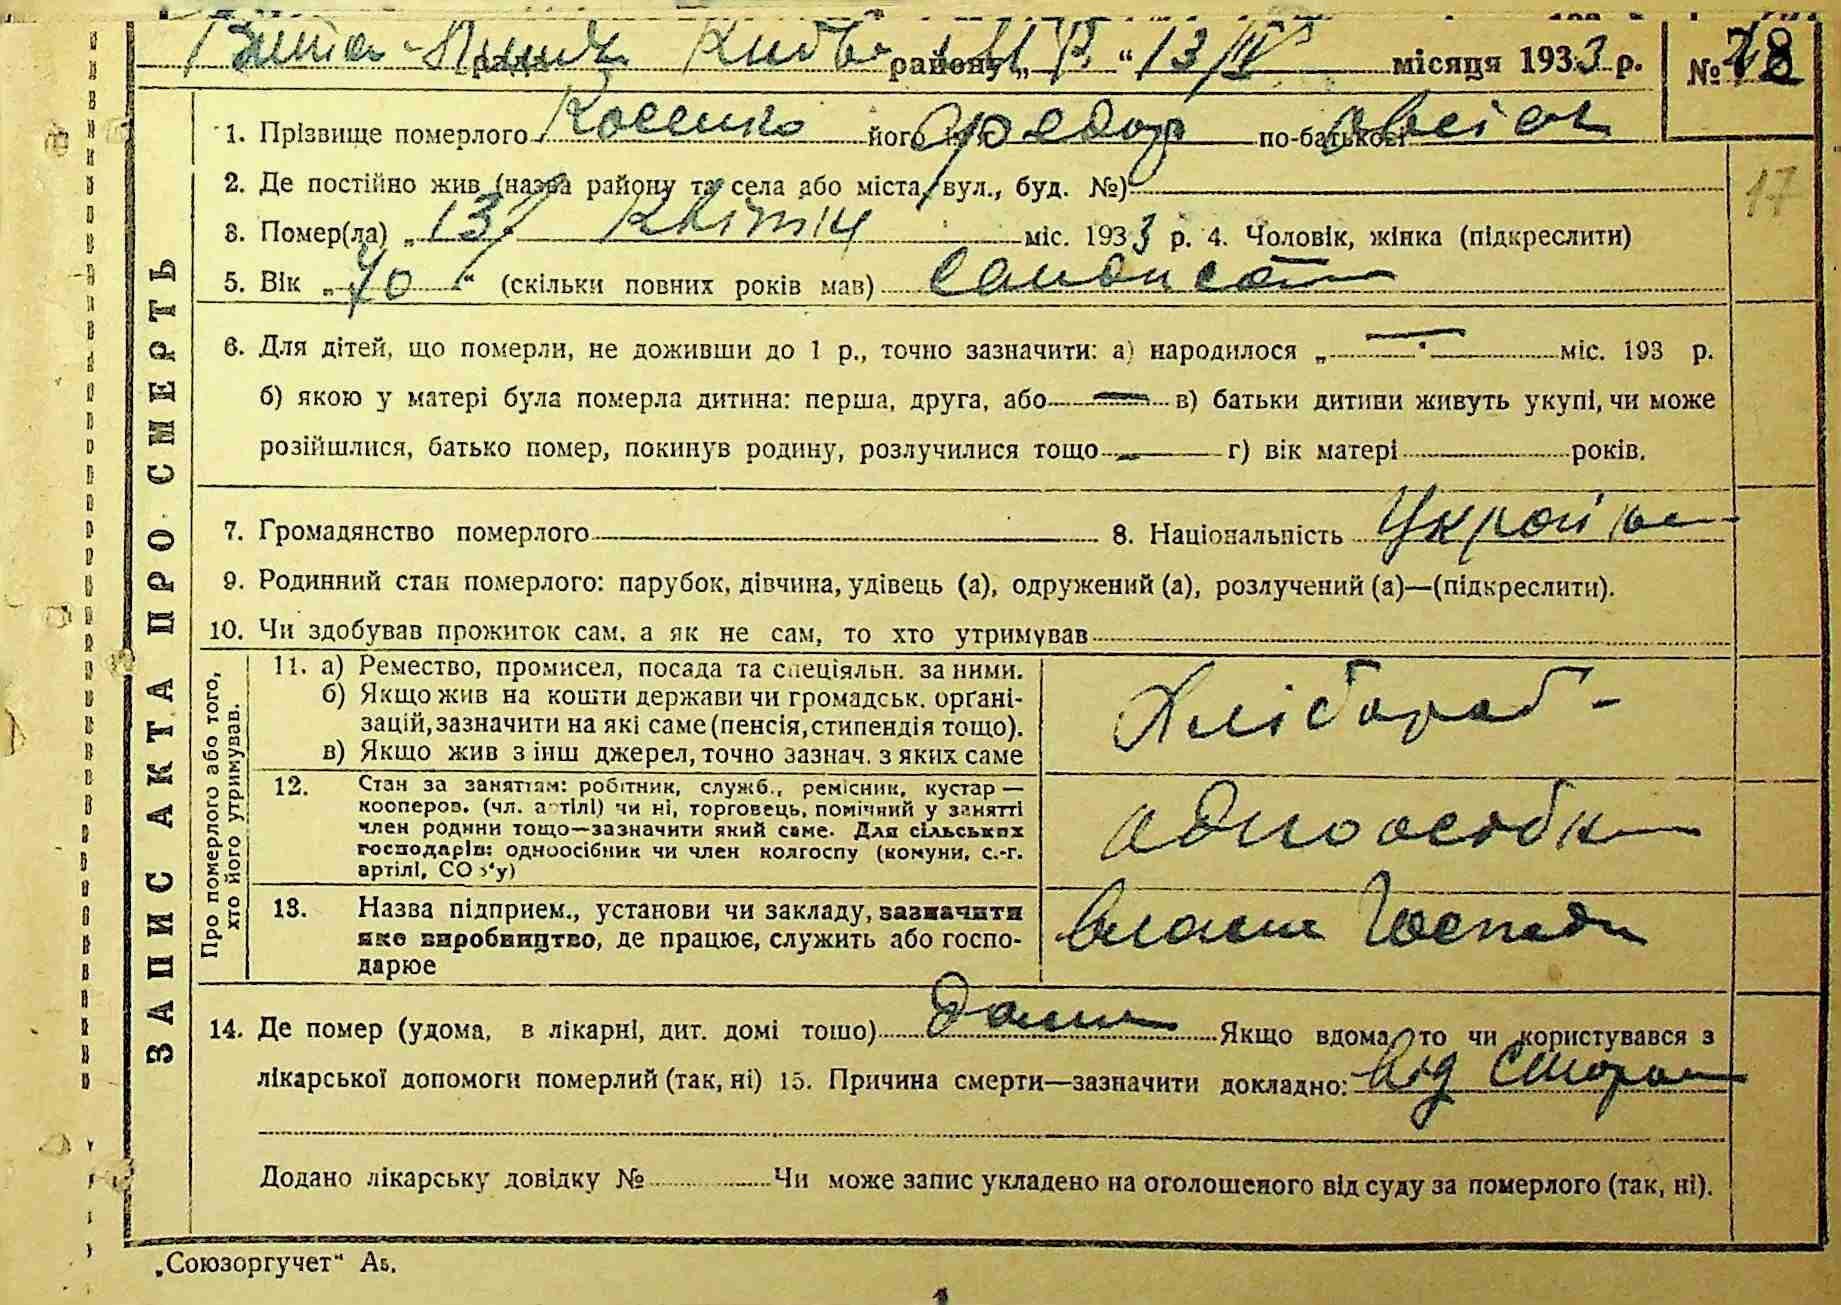 рада району „ “ 13/IV місяця 1933 р. №
1. Прізвище померлого Косенко його ім'я Федор по-батькові
2. Де постійно жив (назва району та села або міста, вул., буд. №)
3. Помер(ла) „13/ квітня міс. 1933 р. 4. Чоловік, жінка (підкреслити)
17
5. Вік „70“ (скільки повних років мав)
6. Для дітей, що померли, не доживши до 1 р., точно зазначити: а) народилося „ “ міс. 193 р.
б) якою у матері була померла дитина: перша, друга, або — в) батьки дитини живуть укупі, чи може
розійшлися, батько помер, покинув родину, розлучилися тощо — г) вік матері років.
7. Громадянство померлого 8. Національність Україн
9. Родинний стан померлого: парубок, дівчина, удівець (а), одружений (а), розлучений (а)—(підкреслити).
10. Чи здобував прожиток сам, а як не сам, то хто утримував
11. а) Ремество, промисел, посада та спеціяльн. за ними.
б) Якщо жив на кошти держави чи громадськ. орґані-
зацій, зазначити на які саме (пенсія, стипендія тощо).
в) Якщо жив з інш джерел, точно зазнач. з яких саме
Хлібороб-
12. Стан за заняттям: робітник, служб., ремісник, кустар—
кооперов. (чл. артілі) чи ні, торговець, помічний у занятті
член родини тощо—зазначити який саме. Для сільських
господарів: одноосібник чи член колгоспу (комуни, с.-г.
артілі, СОЗ'у)
одноосібн
13. Назва підприєм., установи чи закладу, зазначити
яке виробництво, де працює, служить або госпо-
дарює
власне Господ
14. Де помер (удома, в лікарні, дит. домі тошо) дома Якщо вдома, то чи користувався з
лікарської допомоги померлий (так, ні) 15. Причина смерти—зазначити докладно: від старости
Додано лікарську довідку № Чи може запис укладено на оголошеного від суду за померлого (так, ні).
ЗАПИС АКТА ПРО СМЕРТЬ
Про померлого або того,
хто його утримував.
„Союзоргучет“ Аб.